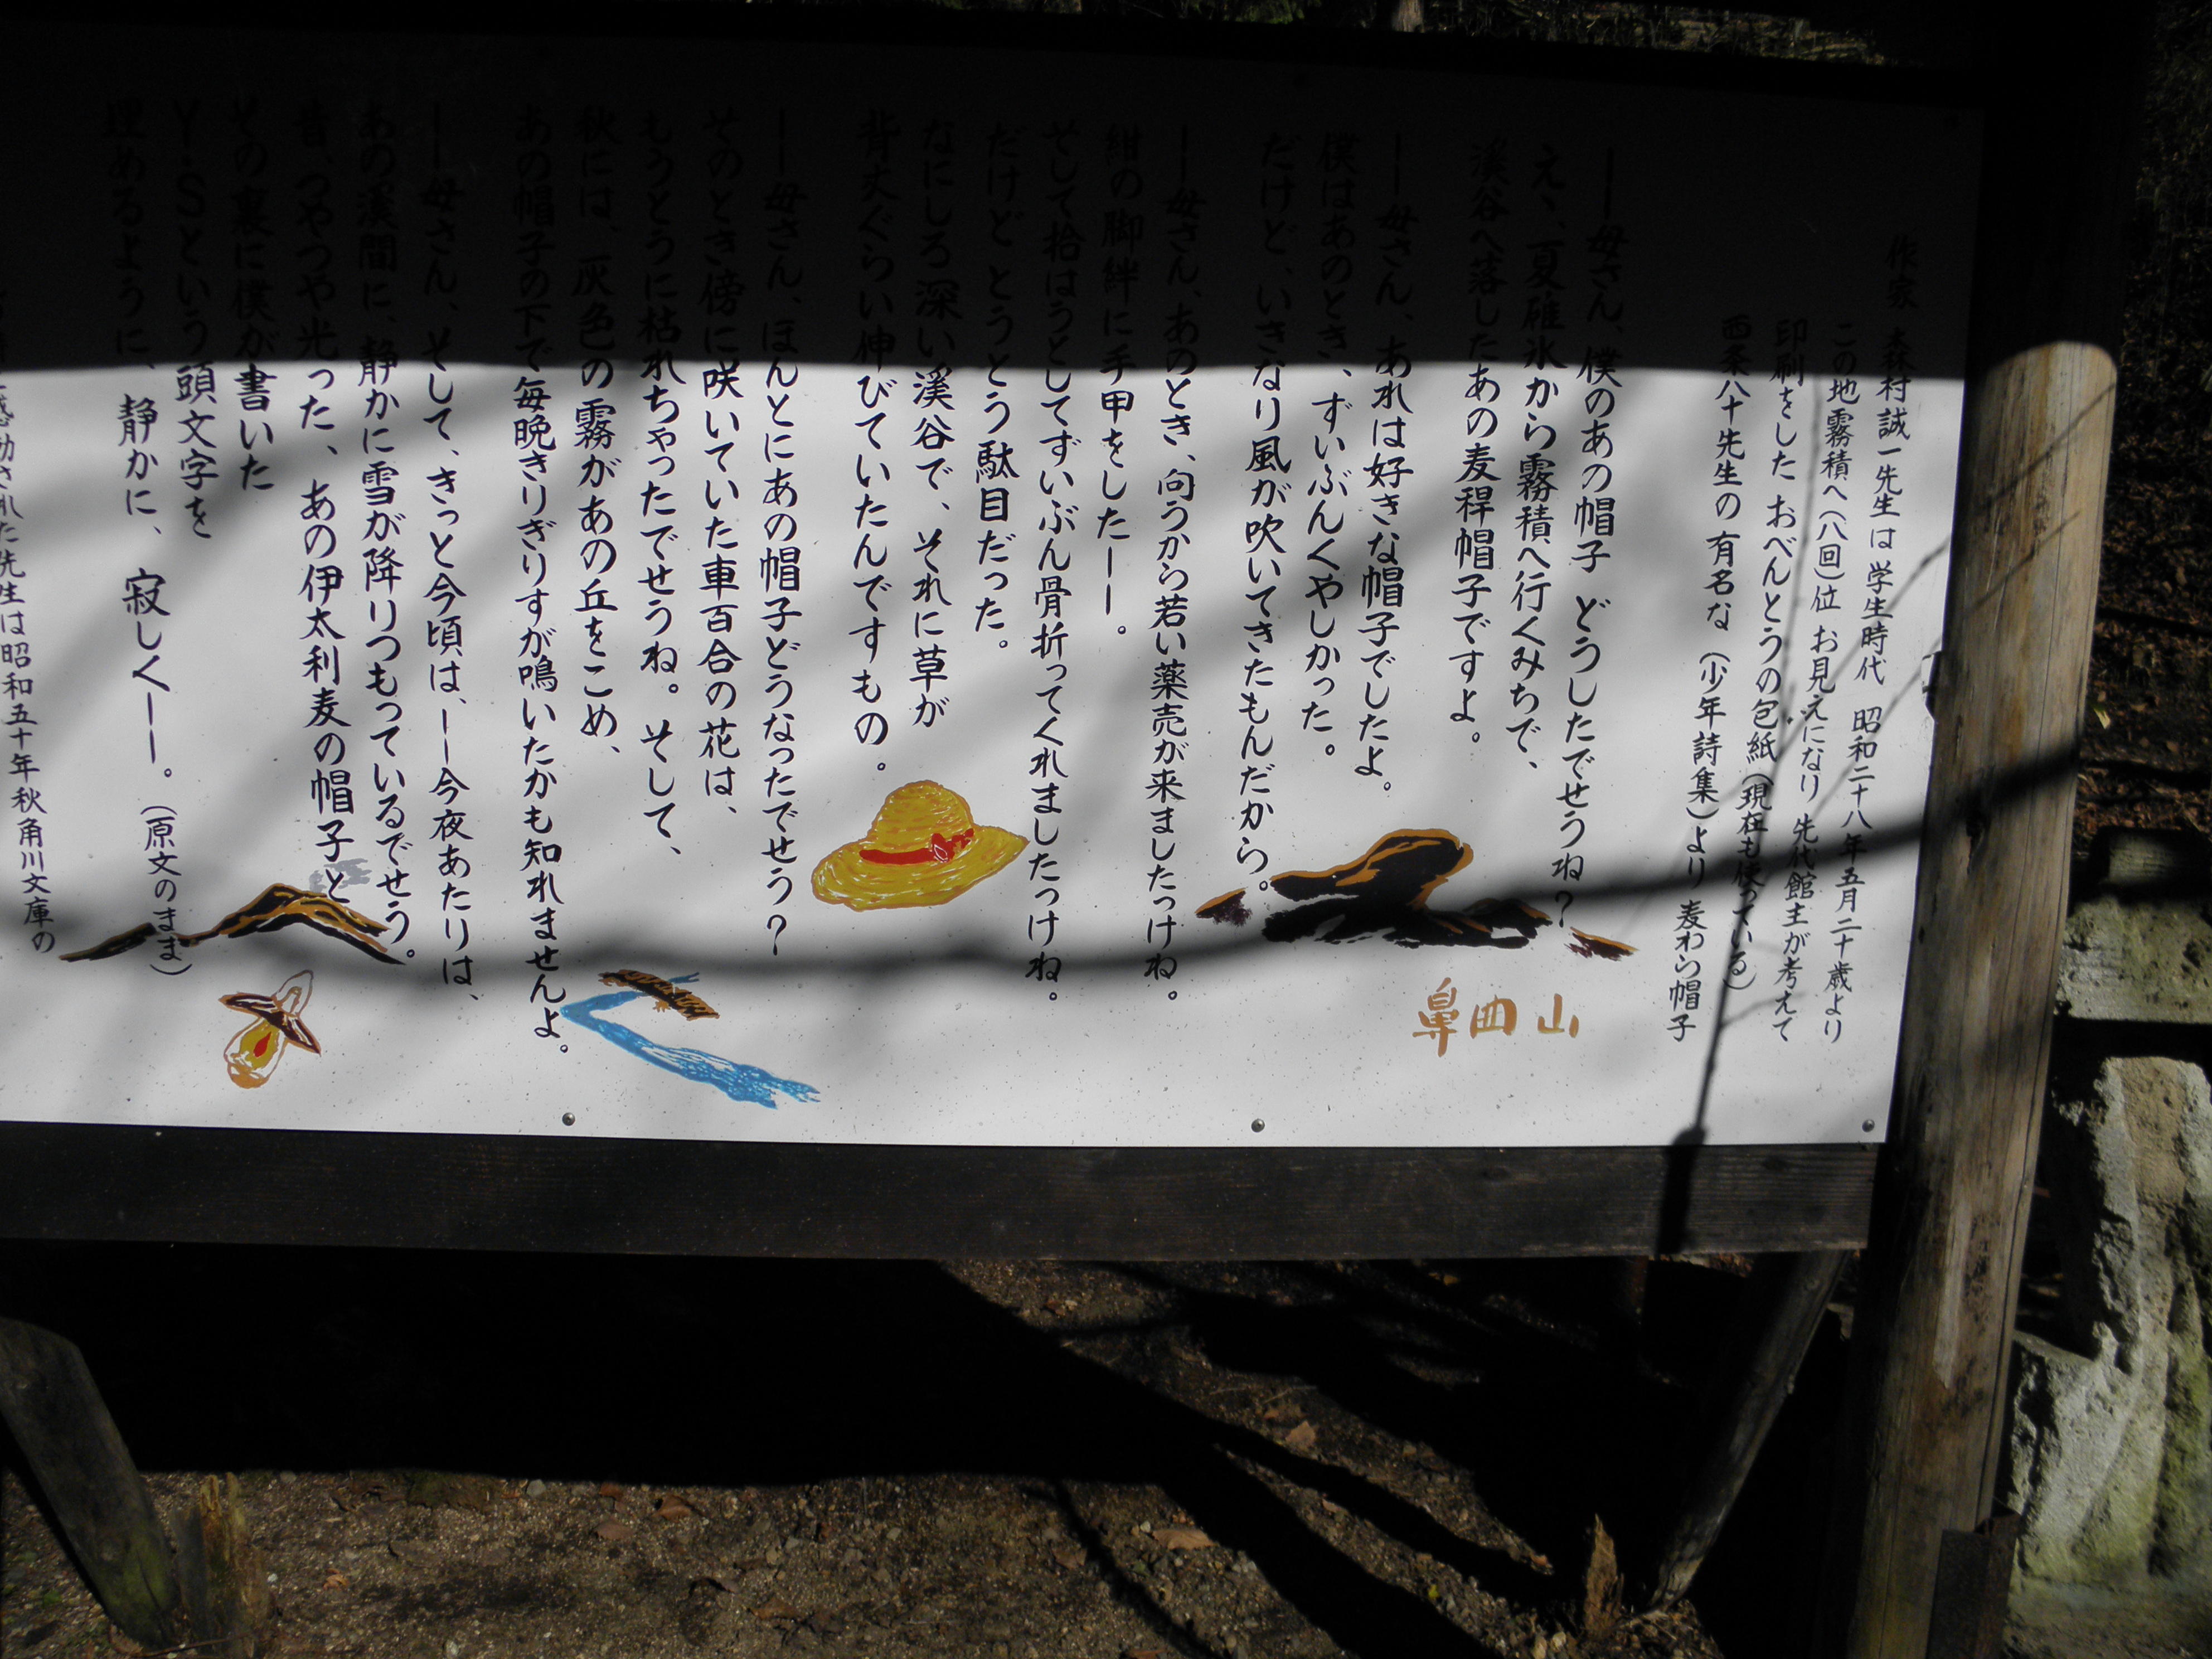 作家 森村誠一先生は学生時代 昭和二十八年五月二十歳より
この地霧積へ(八回)位 お見えになり 先代館主が考えて
印刷をした おべんとうの包紙(現在も使っている)
西条八十先生の 有名な (少年詩集)より 麦わら帽子
──母さん、僕のあの帽子 どうしたでせうね?
えゝ、夏碓氷から霧積へ行くみちで、
渓谷へ落したあの麦稈帽子ですよ。
──母さん、あれは好きな帽子でしたよ。
僕はあのとき、ずいぶんくやしかった。
だけど、いきなり風が吹いてきたもんだから。
──母さん、あのとき、向うから若い薬売が来ましたっけね。
紺の脚絆に手甲をした──。
そして拾はうとしてずいぶん骨折ってくれましたっけね。
だけど とうとう駄目だった。
なにしろ深い渓谷で、それに草が
背丈ぐらい伸びていたんですもの。
──母さん、ほんとにあの帽子どうなったでせう?
そのとき傍に咲いていた車百合の花は、
もうとうに枯れちゃったでせうね。そして、
秋には、灰色の霧があの丘をこめ、
あの帽子の下で毎晩きりぎりすが鳴いたかも知れませんよ。
──母さん、そして、きっと今頃は、──今夜あたりは、
あの渓間に、静かに雪が降りつもっているでせう。
昔、つやつや光った、あの伊太利麦の帽子と
その裏に僕が書いた
Y・Sという頭文字を
埋めるように、静かに、寂しく──。(原文のまま)
感動された先生は昭和五十年秋角川文庫の
鼻曲山